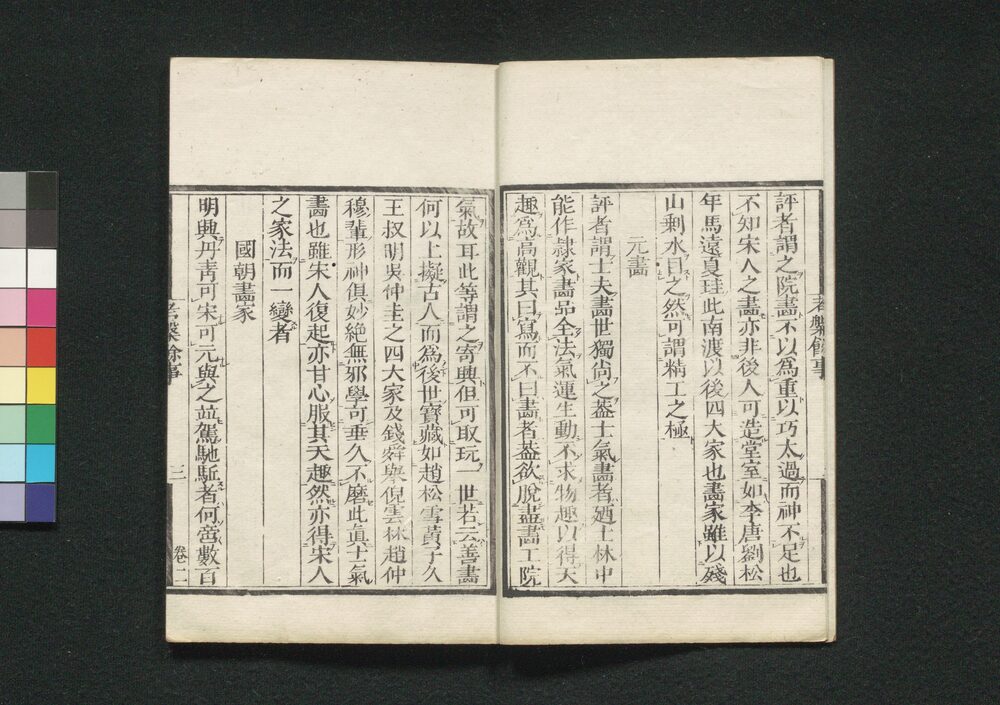 評者謂之院畵不以爲重以巧太過而神不足也
不知宋人之畵亦非後人可造堂室如李唐劉松
年馬遠夏珪此南渡以後四大家也畵家雖以殘
山剩水目之然可謂精工之極
元畵
評者謂士夫畵世獨尚之葢士氣畵者廼士林中
能作隷家畵品全法氣運生動不求物趣以得天
趣爲高觀其曰寫而不曰畵者葢欲脫盡畵工院
氣故耳此等謂之寄興但可取玩一世若云善畵
何以上擬古人而爲後世寶藏如趙松雪黃子久
王叔明吳仲圭之四大家及錢舜舉倪雲林趙仲
穆輩形神俱妙絕無邪學可垂久不磨此眞士氣
畵也雖宋人復起亦甘心服其天趣然亦得宋人
之家法而一變者
國朝畵家
明興丹靑可宋可元與之並駕馳駈者何啻數百
考槃餘事
三
卷二